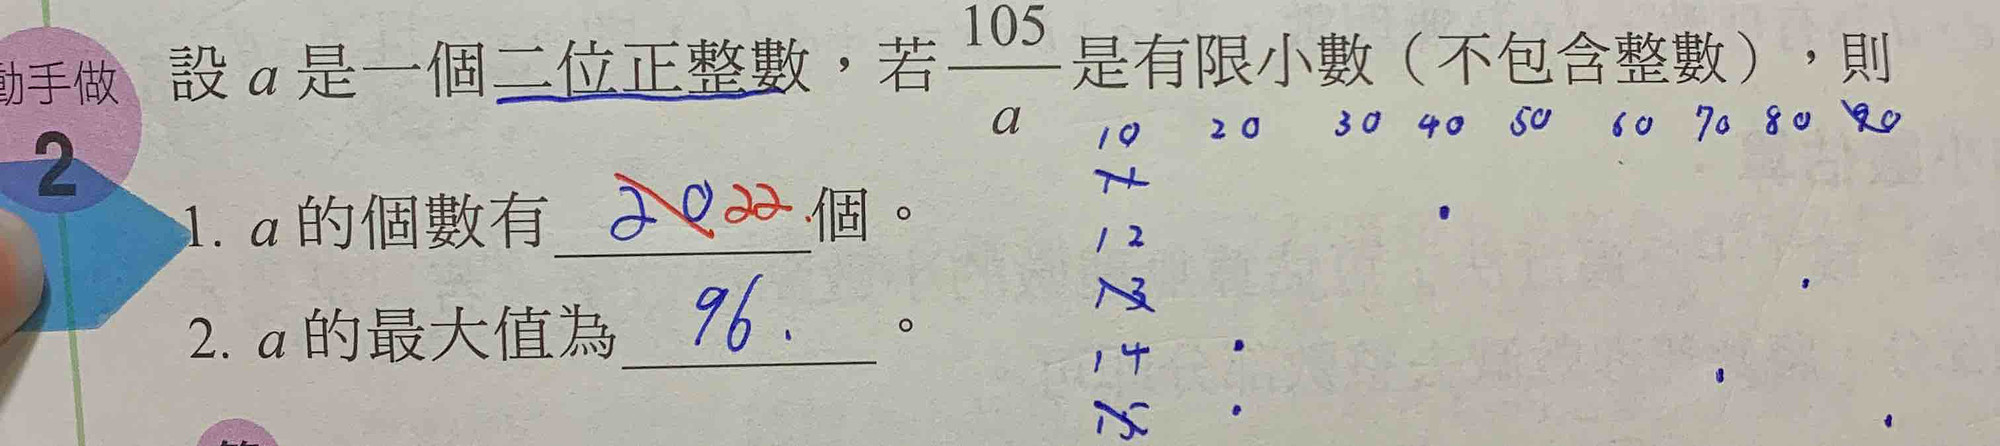 動手做
2
設 a 是一個二位正整數，若 105/a 是有限小數（不包含整數），則
10 20 30 40 50 60 70 80 90
11
1. a 的個數有 20 22. 個。
12
13
2. a 的最大值為 96. 。
14
15